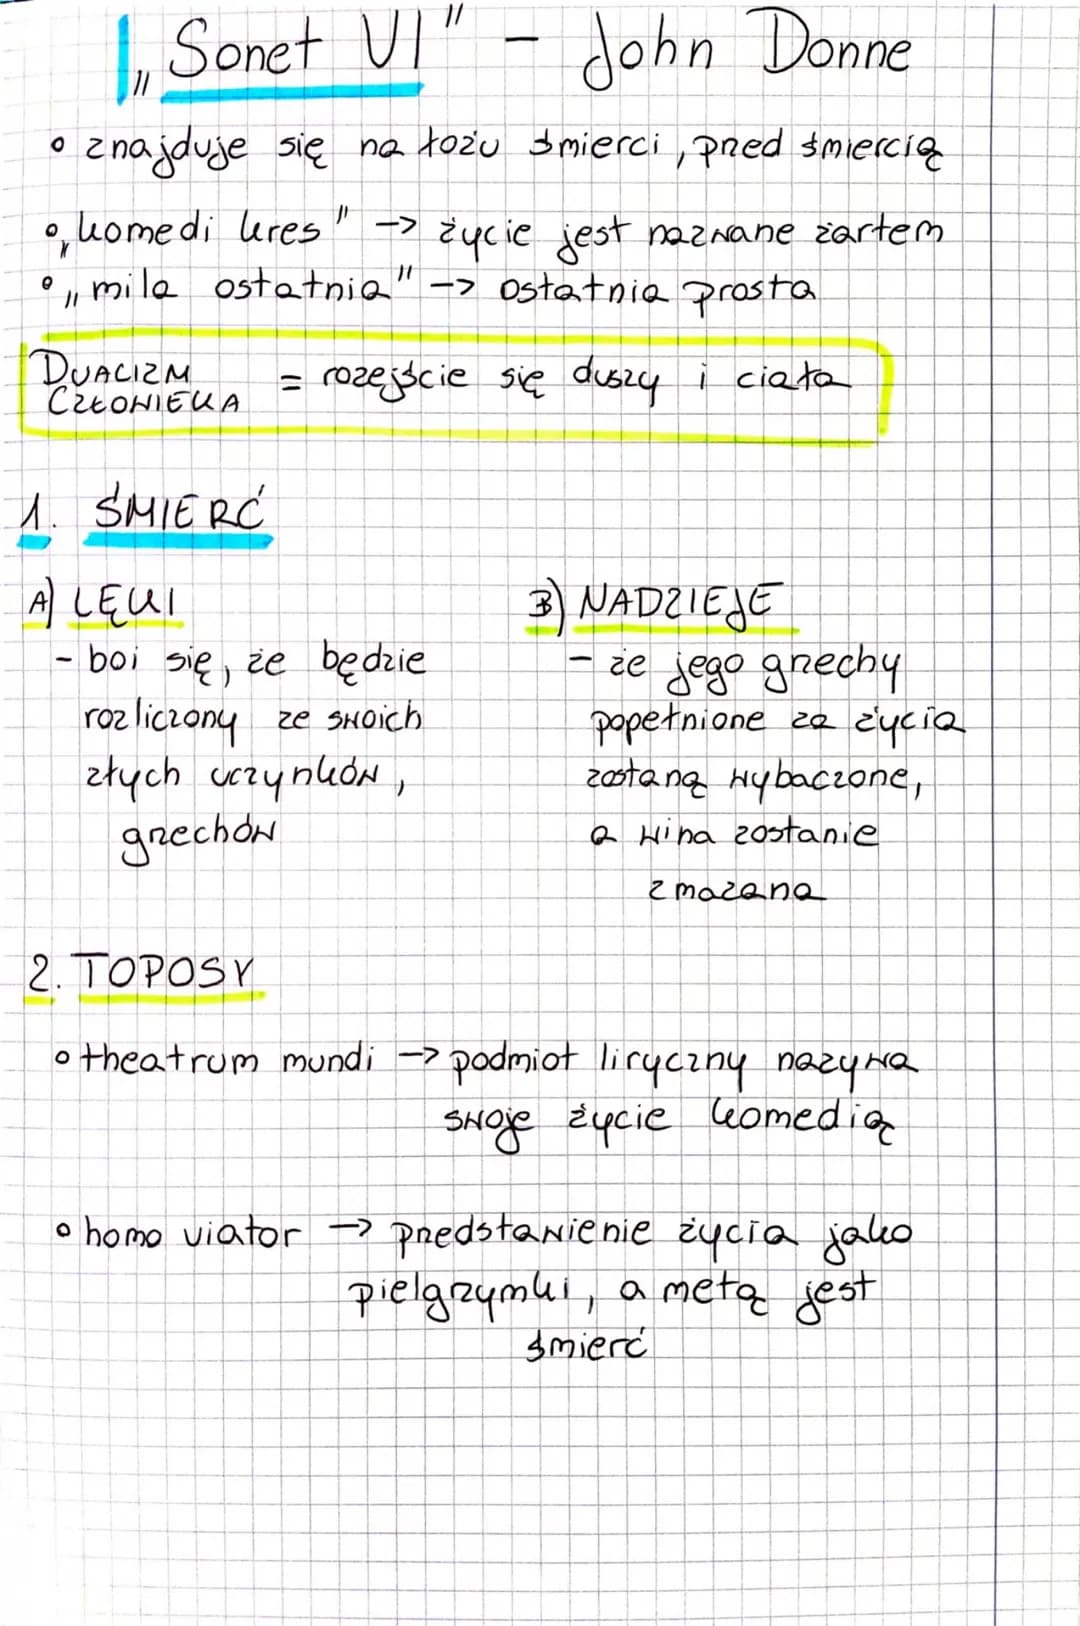 „Sonet VI" - John Donne
• znajduje się na łożu śmierci, przed śmiercią
• „komedi kres" -> życie jest nazwane żartem
• „mila ostatnia" -> ostatnia prosta
DUALIZM CZŁOWIEKA = rozejście się duszy i ciała
1. ŚMIERĆ
A) LĘKI
- boi się, że będzie
rozliczony ze swoich
złych uczynków,
grzechów
B) NADZIEJE
- że jego grzechy
popełnione za życia
zostaną wybaczone,
a wina zostanie
zmazana
2. TOPOSY
• theatrum mundi -> podmiot liryczny nazywa
swoje życie komedią
• homo viator -> przedstawienie życia jako
pielgrzymki, a metą jest
śmierć